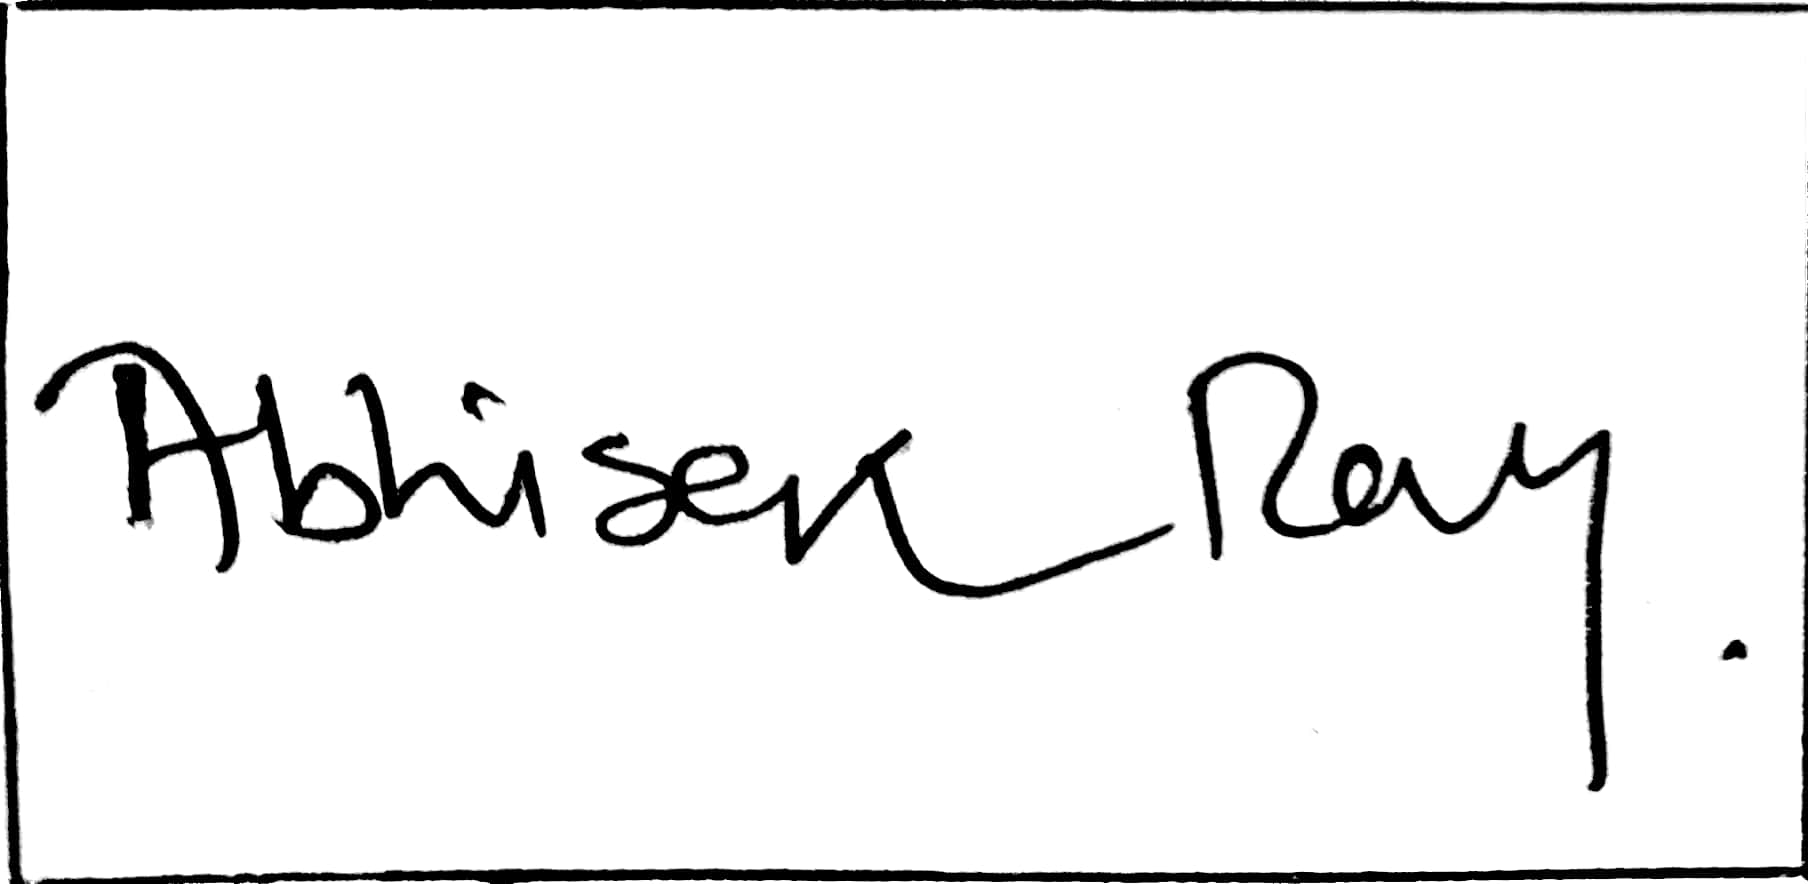 Abhisek Ray.